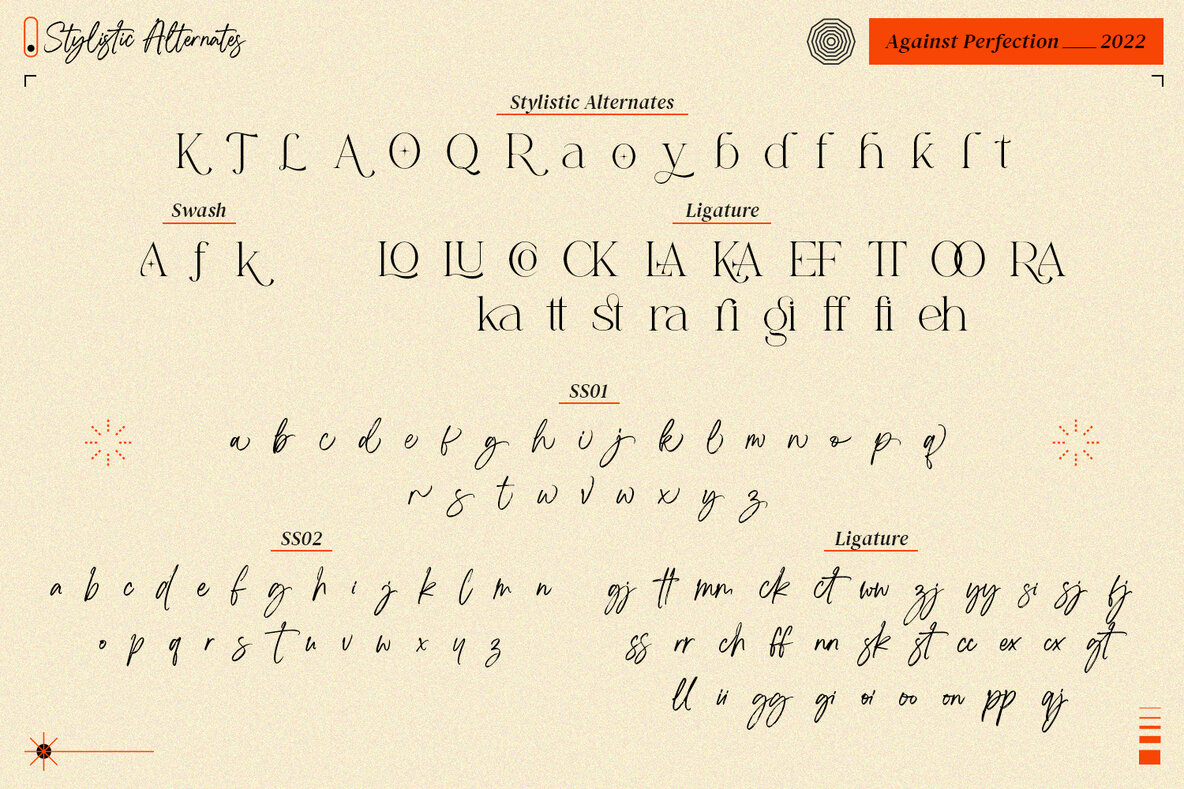 Stylistic Alternates
Against Perfection ___ 2022
Stylistic Alternates
K T L A O Q R a o y b d f h k l t
Swash
A f k
Ligature
LO LU CO CK LA KA EF TT OO RA
ka tt st ra ri gi ff fi eh
SS01
a b c d e f g h i j k l m n o p q
r s t u v w x y z
SS02
a b c d e f g h i j k l m n
o p q r s t u v w x y z
Ligature
gj tt mm ck ct ww zj yy si sj fj
ss rr ch ff nn sk st cc ex cx gt
ll ii gg gi oi oo on pp qj